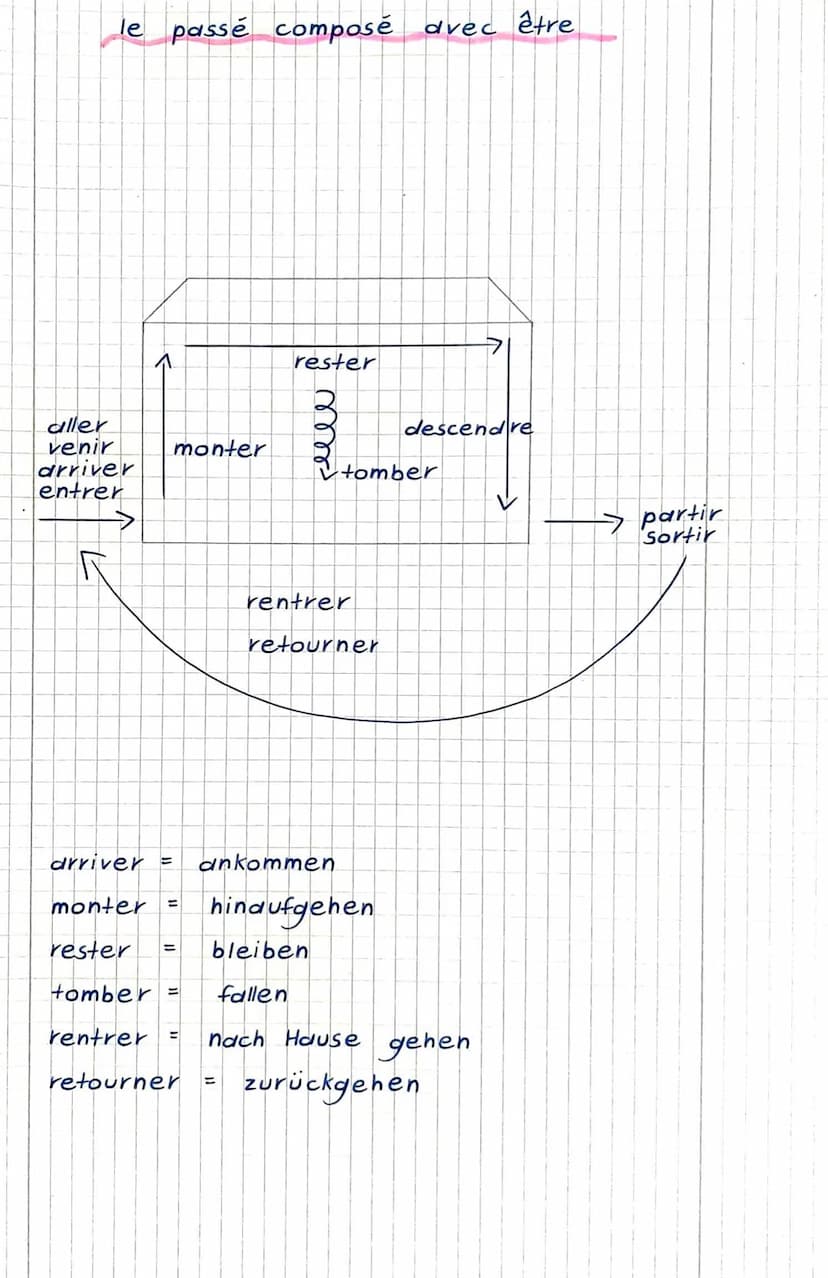 le passé composé avec être
rester
aller
venir
arriver
entrer
monter
descendre
tomber
partir
sortir
rentrer
retourner
arriver = ankommen
monter = hinaufgehen
rester = bleiben
tomber = fallen
rentrer = nach Hause gehen
retourner = zurückgehen